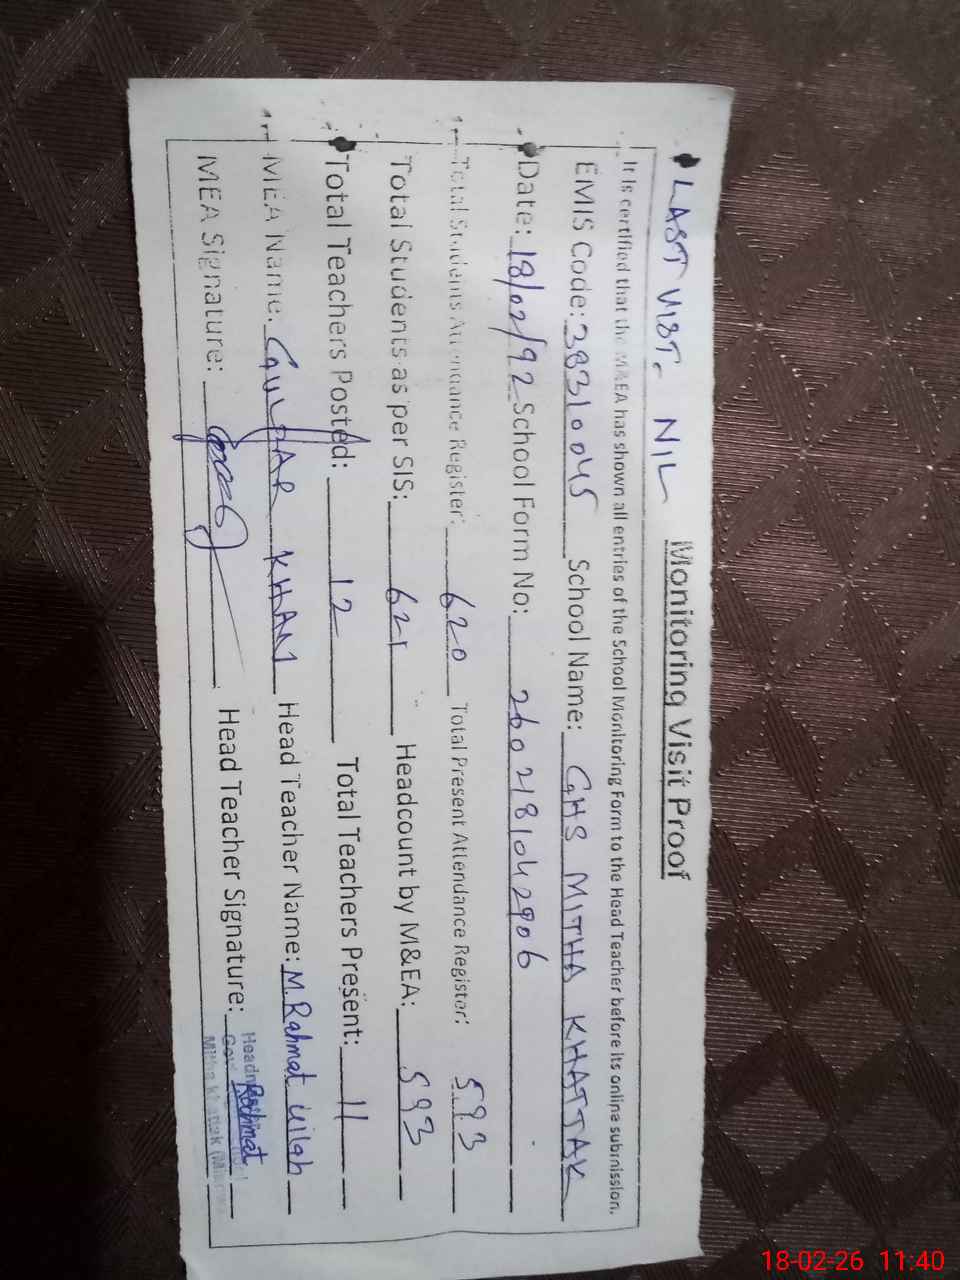 LAST VIST- NIL Monitoring Visit Proof
It is certified that the M&EA has shown all entries of the School Monitoring Form to the Head Teacher before its online submission.
EMIS Code: 38310045 School Name: GHS MITHA KHATTAK
Date: 18/02/92 School Form No: 2602181042906
Total Students Attendance Register: 620 Total Present Attendance Register: 593
Total Students as per SIS: 621 Headcount by M&EA: 593
Total Teachers Posted: 12 Total Teachers Present: 11
MEA Name: GULZAR KHAN Head Teacher Name: M. Rahmat Ullah
MEA Signature: Head Teacher Signature: Rahmat
18-02-26 11:40